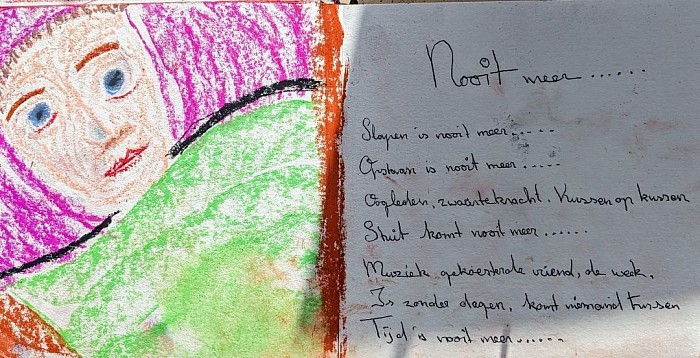 Nooit meer......
Slapen is nooit meer.....
Opstaan is nooit meer.....
Oogleden, zwaartekracht. Kussen op kussen
Sluit komt nooit meer......
Muziek gekoesterde vriend, de week.
Is zonder dagen, komt niemand tussen
Tijd is nooit meer......